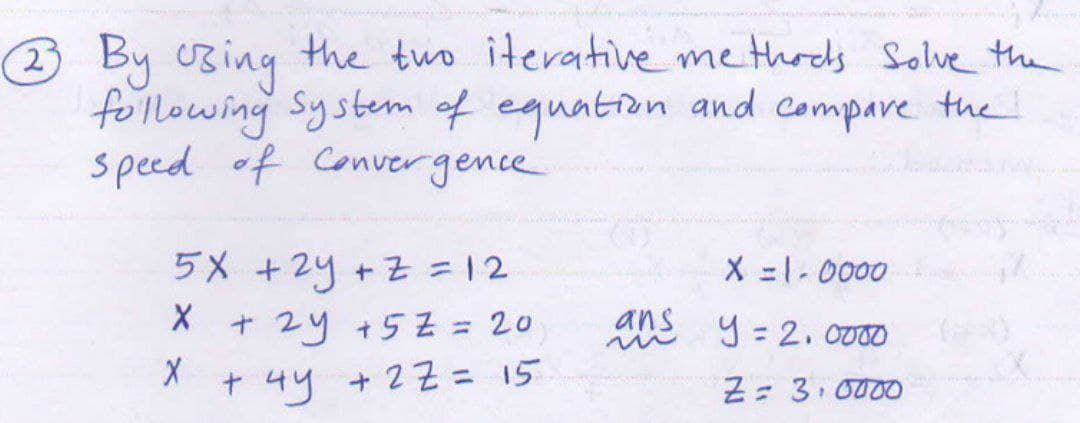 ② By using the two iterative methods Solve the
following system of equation and compare the
speed of Convergence
5x + 2y + z = 12
x + 2y + 5z = 20
x + 4y + 2z = 15
ans
x = 1.0000
y = 2.0000
z = 3.0000